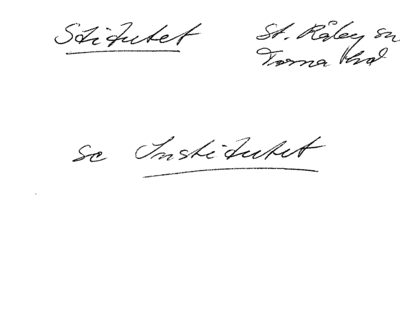 Stitutet
St. Råby sn
Torna hd
se Institutet